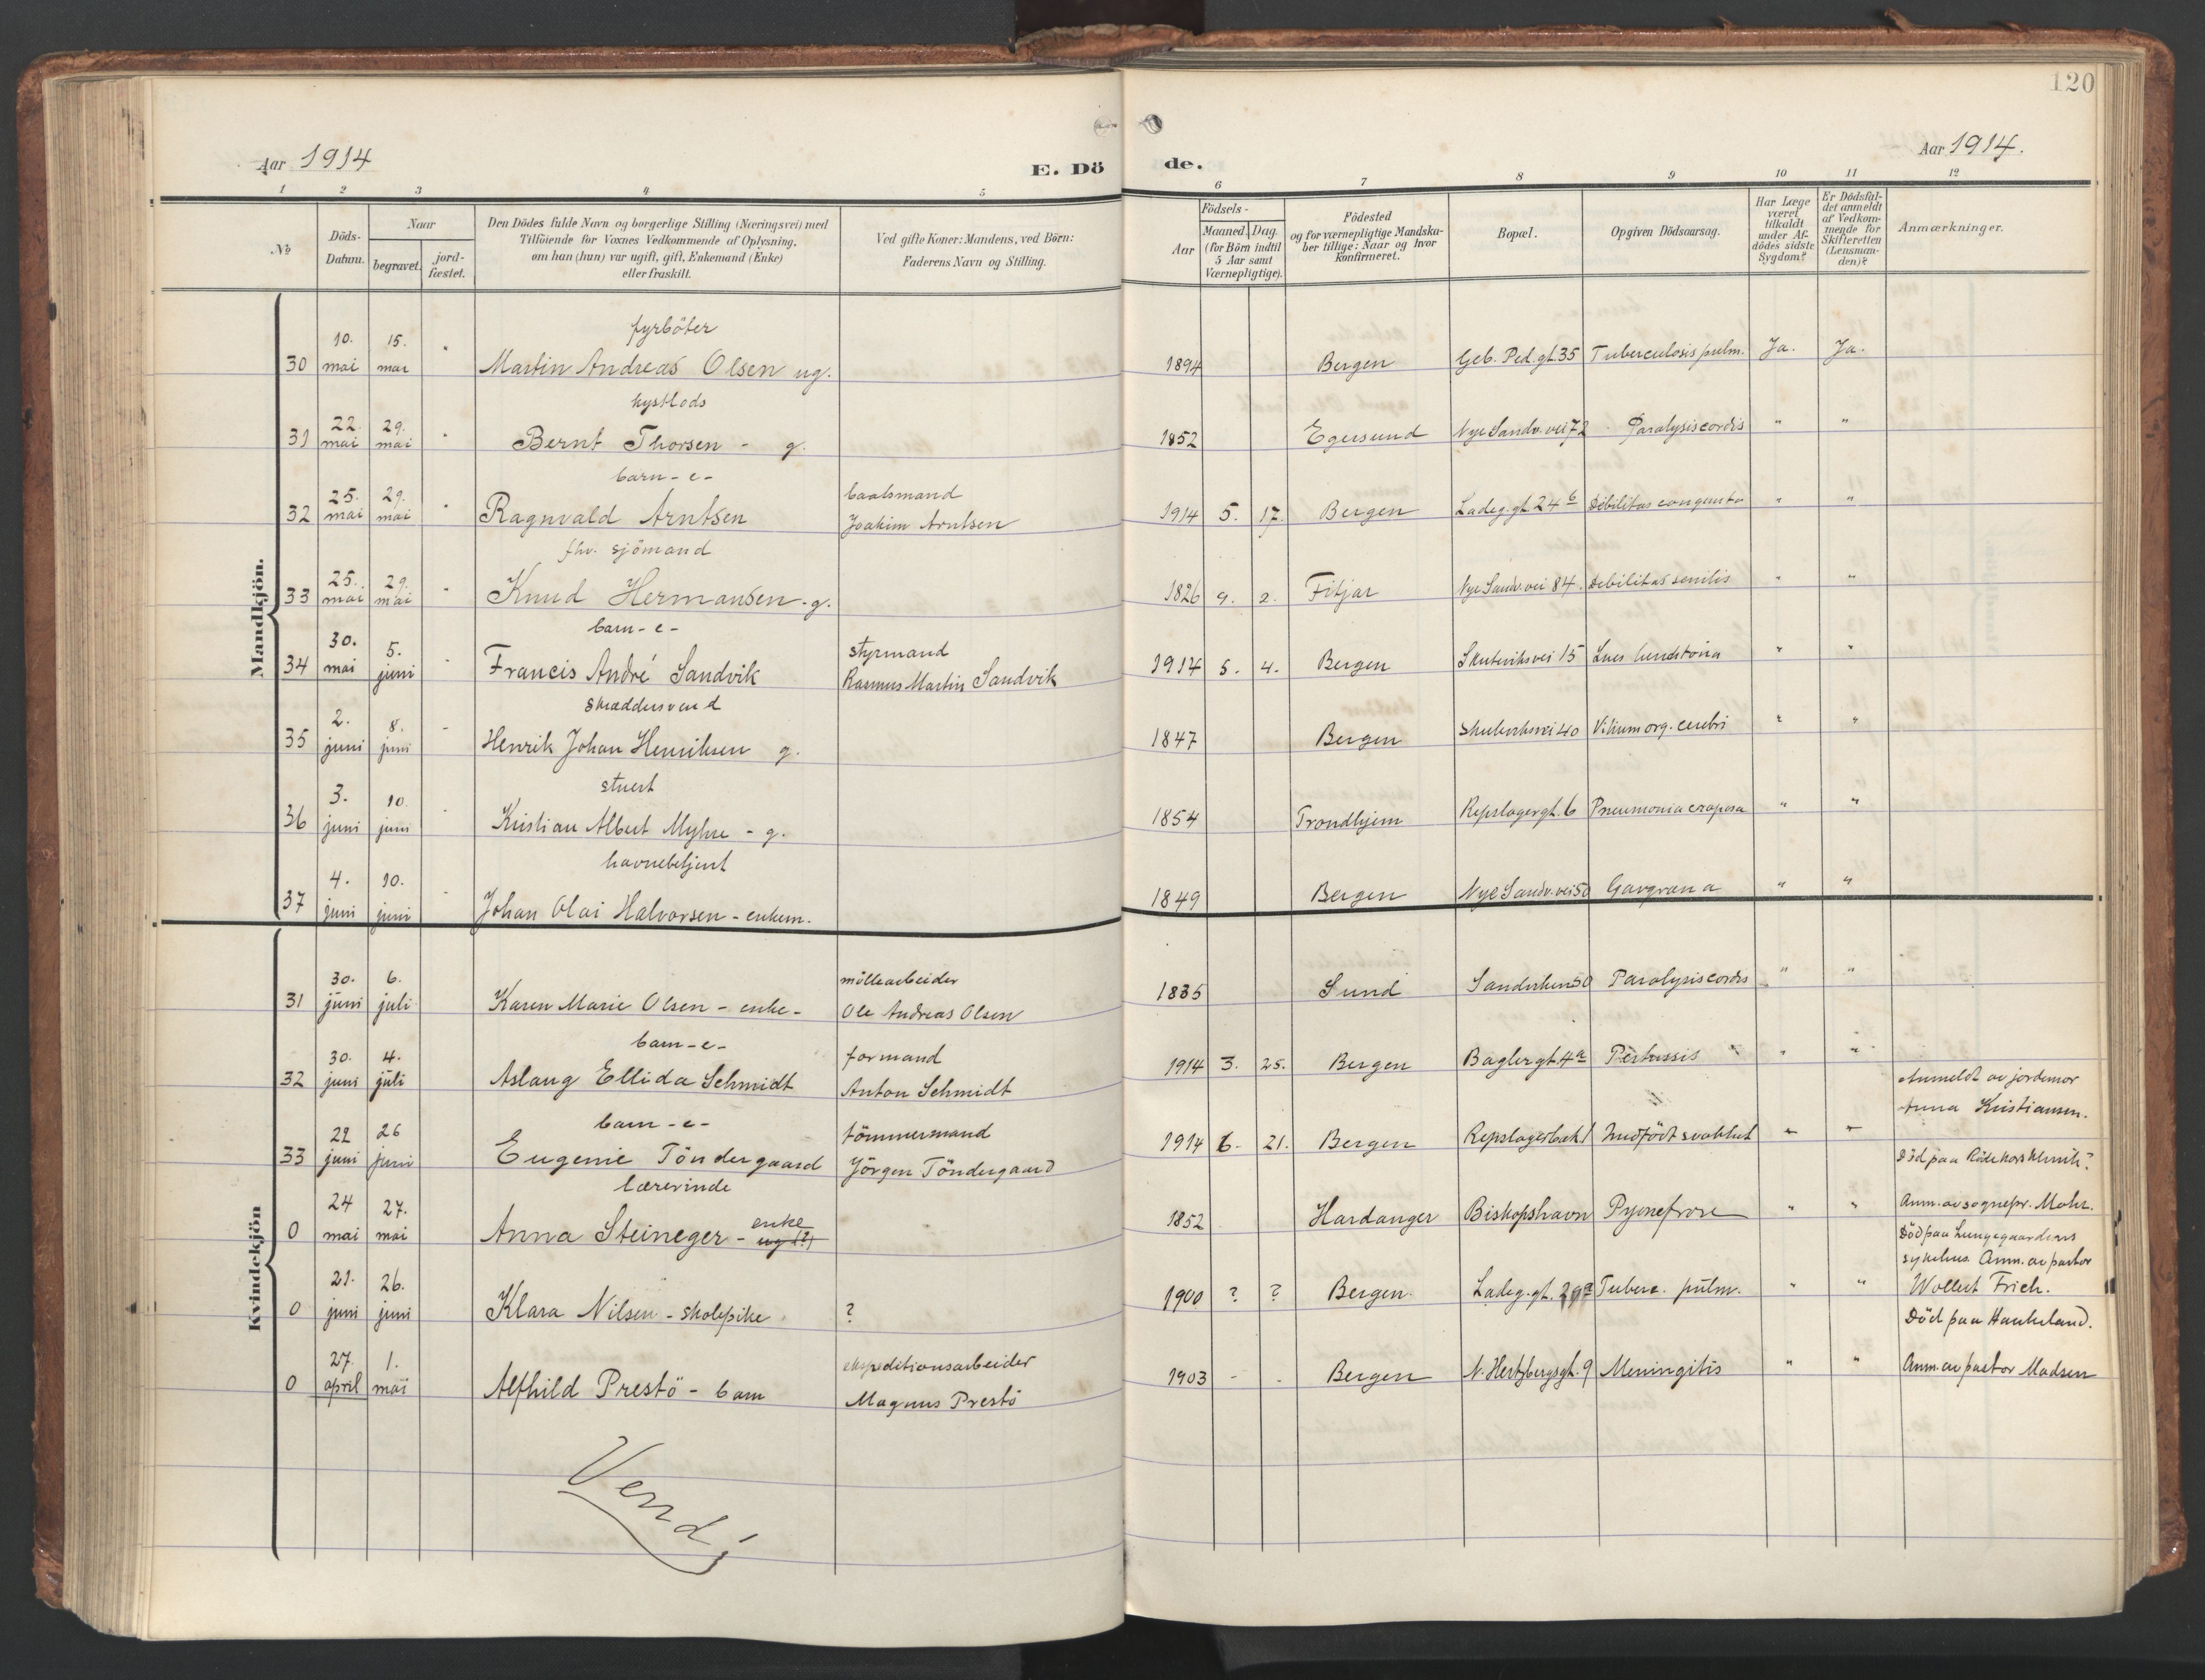 120
Aar 1914
E. Dö
de.
Aar 1914.
1 2 3 4 5 6 7 8 9 10 11 12
No
Döds-Datum.
Naar
begravet.
jord-fæstet.
Den Dödes fulde Navn og borgerlige Stilling (Næringsvei) med
Tilföiende for Voxnes Vedkommende af Oplysning,
om han (hun) var ugift, gift, Enkemand (Enke)
eller fraskilt.
Ved gifte Koner: Mandens, ved Börn:
Faderens Navn og Stilling.
Födsels-
Aar
Maaned. Dag.
(for Börn indtil
5 Aar samt
Værnepligtige).
Födested
og for værnepligtige Mandska-
ber tillige: Naar og hvor
Konfirmeret.
Bopæl.
Opgiven Dödsaarsag.
Har Læge
været
tilkaldt
under Af-
dödes sidste
Sygdom?
Er Dödsfal-
det anmeldt
af Vedkom-
mende for
Skifteretten
(Lensman-
den)?
Anmærkninger.
Mandkjön.
fyrböter
30 10. mai 15. mai " Martin Andreas Olsen ug. 1894 Bergen Geb. Ped.gt.35 Tuberculosis pulm. Ja. Ja.
kystlods
31 22. mai 29. mai " Bernt Thorsen - g. 1852 Egersund Nye Sandv.vei 72 Paralysis cordis " "
barn - e - baatsmand
32 25. mai 29. mai " Ragnvald Arntsen Joakim Arntsen 1914 5. 17. Bergen Ladeg.gt. 24 b Debilitas congenita " "
fhv. sjömand
33 25. mai 29. mai " Knud Hermansen - g. 1826 9. 2. Fitjar Nye Sandv.vei 84. Debilitas senilis " "
barn - e - styrmand
34 30. mai 5. juni " Francis André Sandvik Rasmus Martin Sandvik 1914 5. 4. Bergen Skuteviksvei 15 Lues " "
skræddersvend
35 2. juni 8. juni " Henrik Johan Henriksen g. 1847 Bergen Skuteviksvei 40 Vitium org. cerebri " "
stuert
36 3. juni 10. juni " Kristian Albert Myhre - g. 1854 Trondhjem Repslagergt. 6 Pneumonia crouposa " "
havnebetjent
37 4. juni 10. juni " Johan Olai Halvorsen - enkem. 1849 Bergen Nye Sandv.vei 50 Gangræna " "
Kvindekjön
möllearbeider
31 30. juni 6. juli Karen Marie Olsen - enke - Ole Andreas Olsen 1835 Sund Sandviken 50 Paralysis cordis " "
barn - e - formand
32 30. juni 4. juli Aslaug Ellida Schmidt Anton Schmidt 1914 3. 25. Bergen Baglergt. 4a Pertussis " "
Anmeldt av jordemor
Anna Kristiansen.
barn - e - tömmermand
33 22 juni 26 juni Eugenie Töndergaard Jörgen Töndergaard 1914 6. 21. Bergen Repslagerbak. 1 Medfödt svakhet " "
Död paa Röde kors klinik.
lærerinde
0 24 mai 27. mai Anna Steineger - enke ug (?) 1852 Hardanger Biskopshavn Pyonefrose " " Anm. av sognepr. Mohr.
Död paa Lungegaardens
sykehus. Anm. av pastor
0 21. juni 26. juni Klara Nilsen - skolepike ? 1900 ? ? Bergen Ladeg.gt. 29a Tuberc. pulm. " " Wollert Frich.
Död paa Haukeland.
ekspeditionsarbeider
0 27. april 1. mai Alfhild Prestö - barn Magnus Prestö 1903 - - Bergen N. Hertzbergsgt. 9 Meningitis " " Anm. av pastor Madsen
Vend!